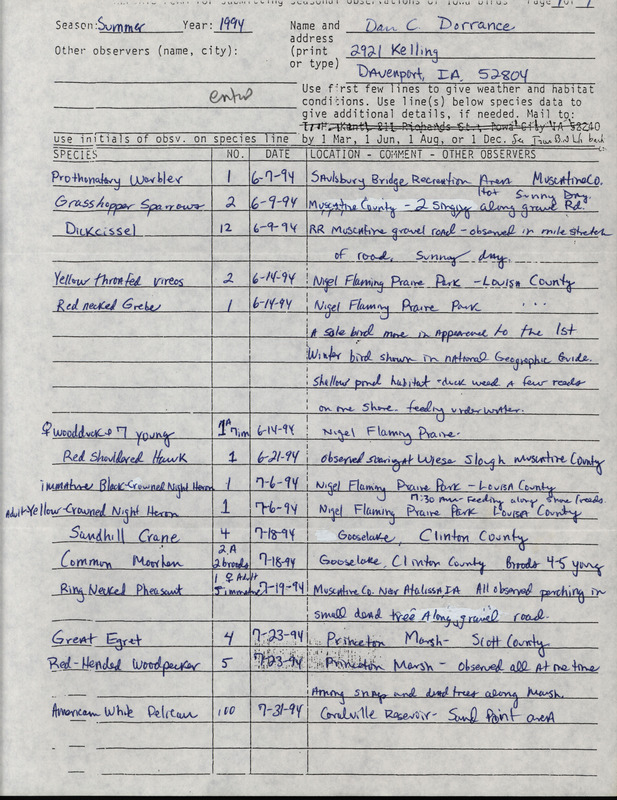 submitting seasonal observations of Iowa birds Page 1 of 1
Season: Summer Year: 1994 Name and Dan C. Dorrance
address
Other observers (name, city): (print 2921 Kelling
or type)
Davenport, IA, 52804
entrd Use first few lines to give weather and habitat
conditions. Use line(s) below species data to
give additional details, if needed. Mail to:
T.H. Kent, 211 Richards St., Iowa City IA 52240
use initials of obsv. on species line by 1 Mar, 1 Jun, 1 Aug, or 1 Dec.
SPECIES NO. DATE LOCATION - COMMENT - OTHER OBSERVERS
Prothonotary Warbler 1 6-7-94 Saulsbury Bridge Recreation Area Muscatine Co.
Hot Sunny Day
Grasshopper Sparrows 2 6-9-94 Muscatine County - 2 Singing along gravel Rd.
Dickcissel 12 6-9-94 RR Muscatine gravel road - observed in mile stretch
of road, Sunny day.
Yellow thronted vireos 2 6-14-94 Nigel Flaming Praire Park - Louisa County
Red necked Grebe 1 6-14-94 Nigel Flaming Praire Park . . .
A sole bird more in Appearance to the 1st
Winter bird shown in National Geographic Guide.
Shallow pond habitat - duck weed A few reeds
on one shore. feeding underwater.
♀ woodduck & 7 young 1A 7im 6-14-94 Nigel Flaming Praire.
Red Shouldered Hawk 1 6-21-94 observed soaring at Wiese Slough Muscatine County
immature Black-Crowned Night Heron 1 7-6-94 Nigel Flaming Praire Park - Louisa County
7:30 Feeding along shore/reeds.
Adult Yellow-Crowned Night Heron 1 7-6-94 Nigel Flaming Praire Park Louisa County
Sandhill Crane 4 7-18-94 Gooselake, Clinton County
Common Moorhen 2 A 2 broods 7-18-94 Gooselake, Clinton County Broods 4-5 young
Ring Necked Pheasant 1 ♀ Adult 5 immature 7-19-94 Muscatine Co. Near Atalissa IA All observed perching in
small dead tree Along gravel road.
Great Egret 4 7-23-94 Princeton Marsh - Scott County
Red-Headed Woodpecker 5 7-23-94 Princeton Marsh - observed all At one time
Among snags and dead trees along Marsh.
American White Pelican 100 7-31-94 Coralville Reservoir - Sand Point area